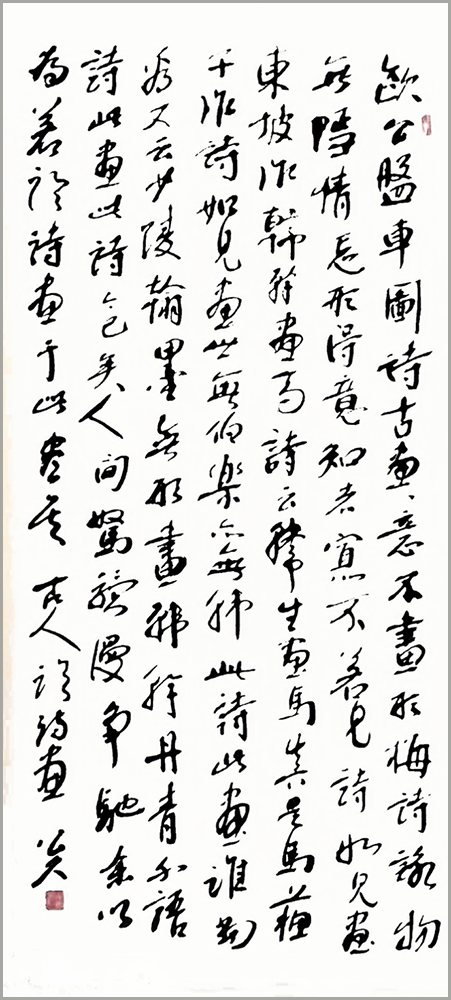 歐公盤車圖詩古畫畫意不畫形梅詩詠物
無隱情忘形得意知者寡不若見詩如見畫
東坡作韓幹畫馬詩云韓生畫馬真是馬蘇
子作詩如見畫世無伯樂亦無韓此詩此畫誰當
看又云少陵翰墨無形畫韓幹丹青不語
詩此畫此詩今已矣人間駑驥漫爭馳余以
為若論詩畫于此盡矣 古人論詩畫